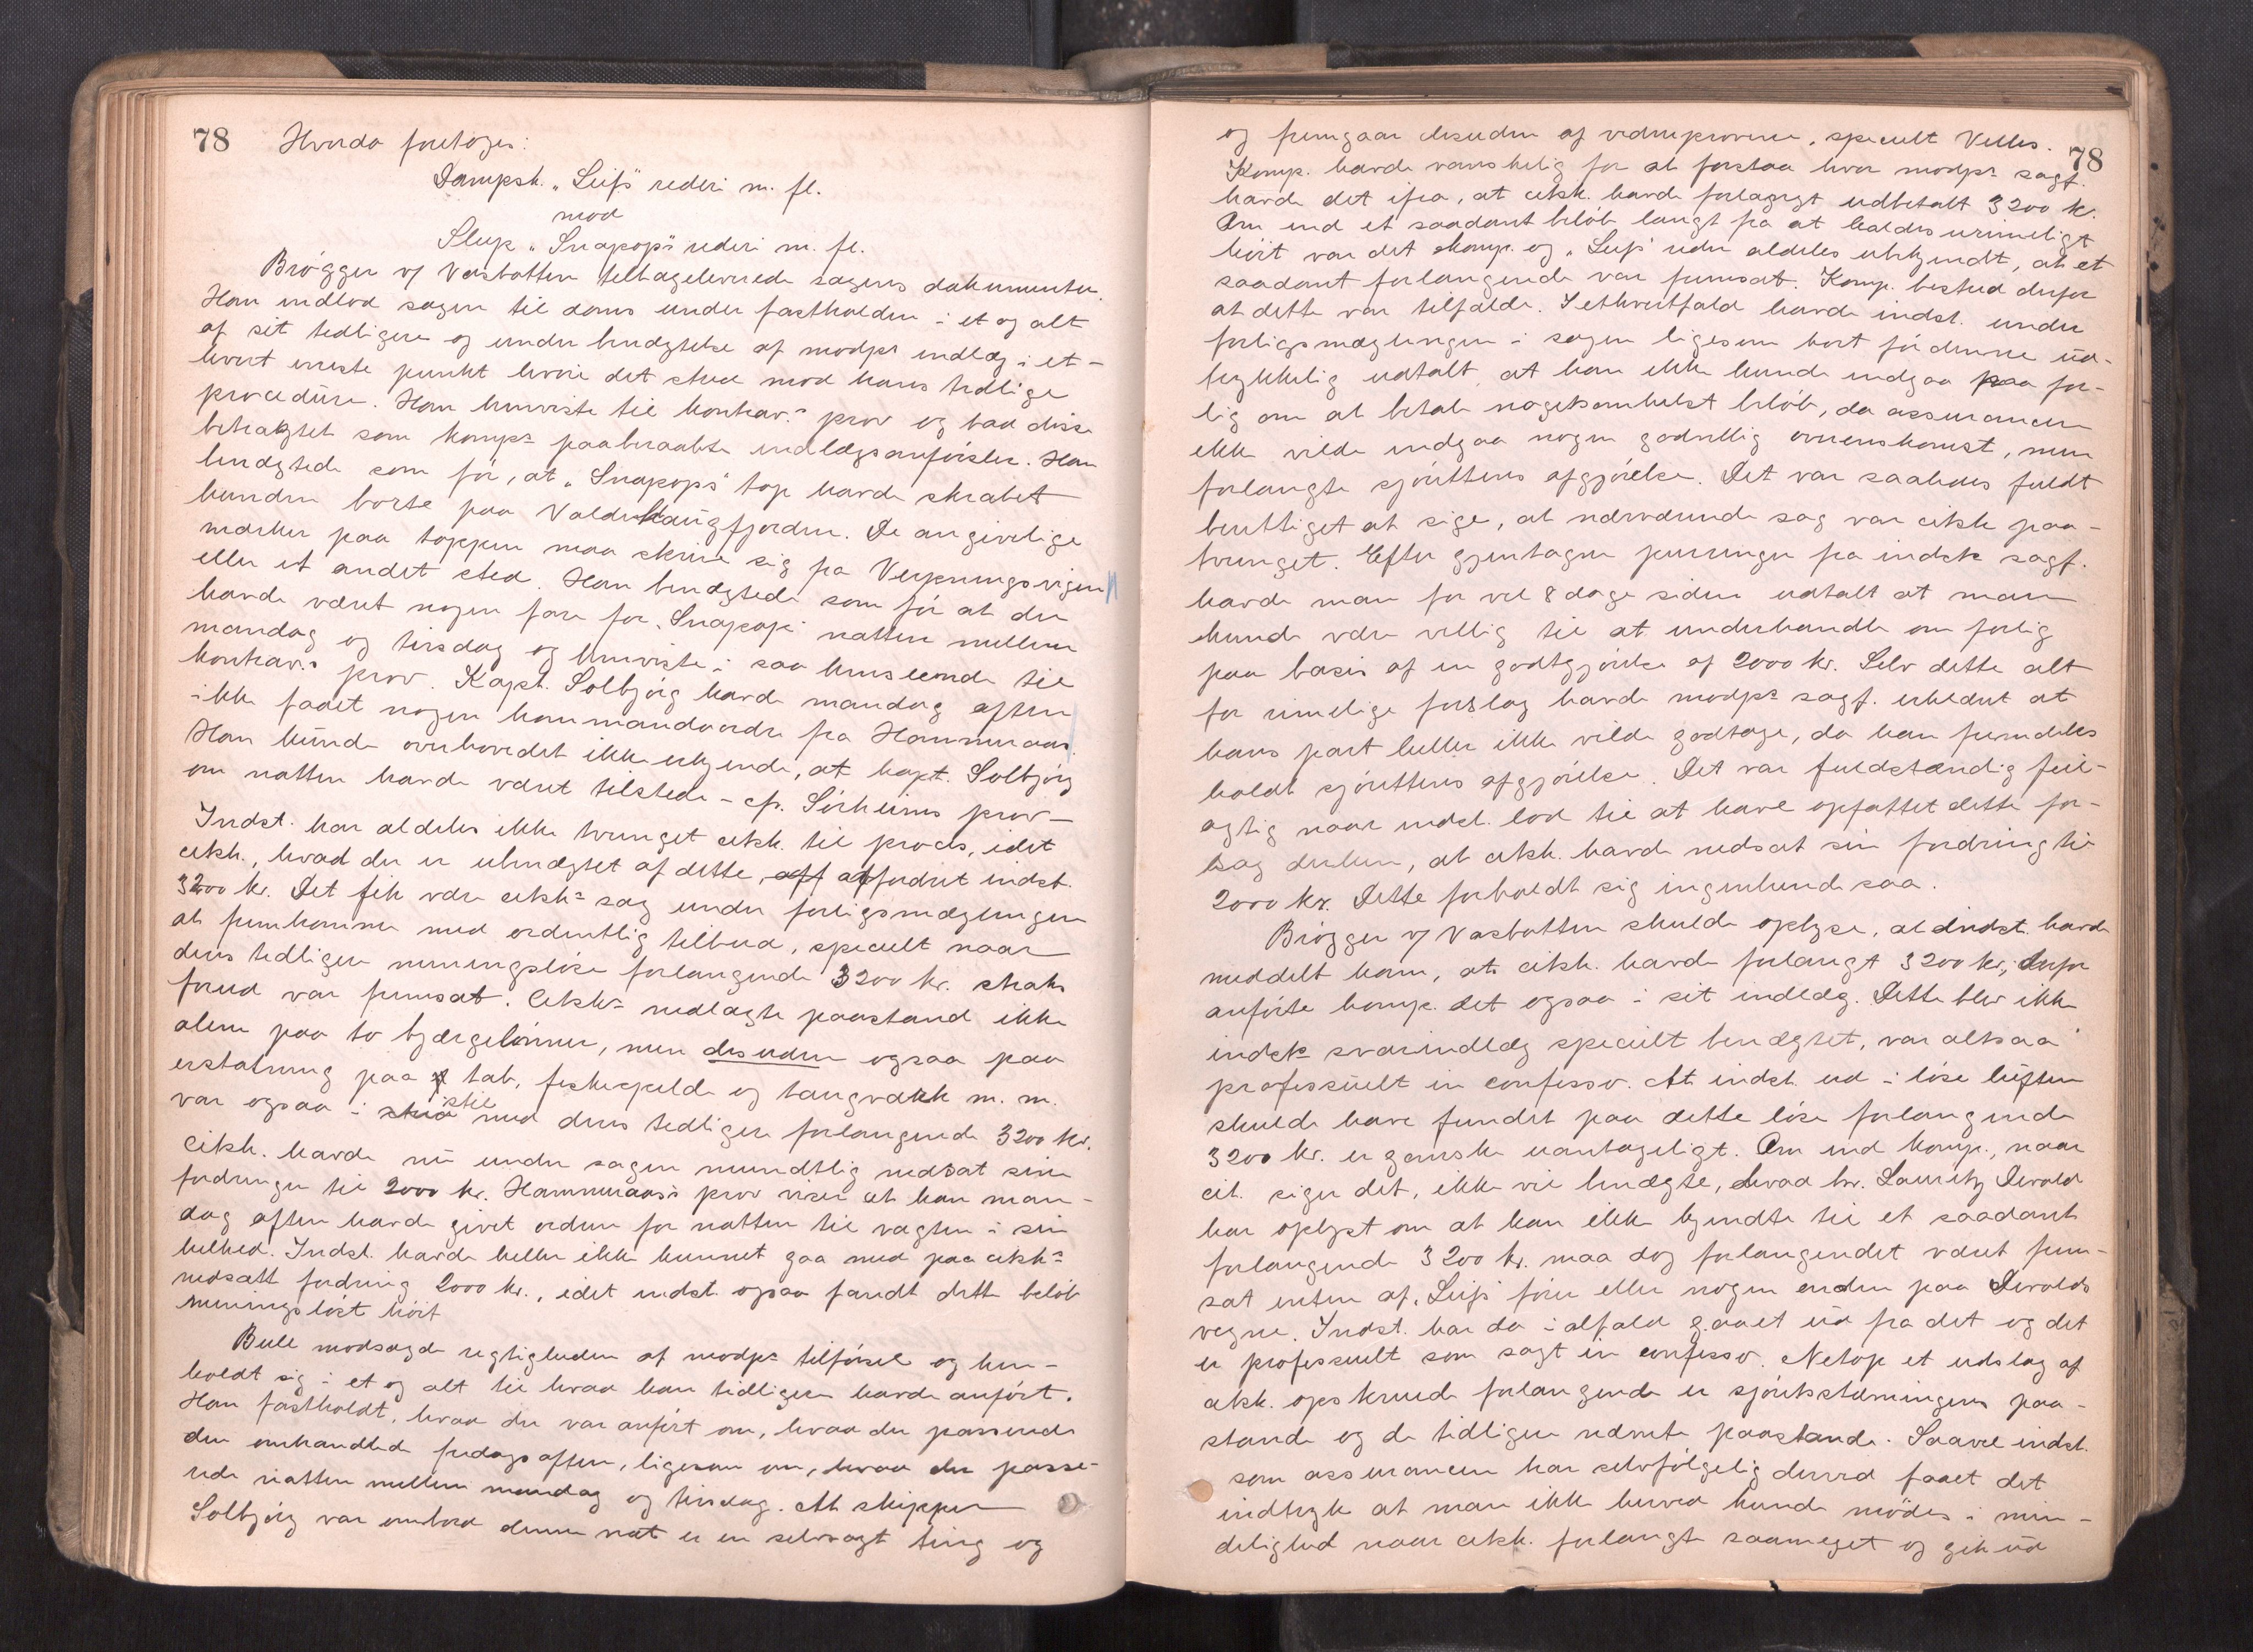 78 Hvorda foretoges:
Dampsk. „Leifs" rederi m. fl.
mod
Slup „Snapops" rederi m. fl.
Brögger v/ Vasbotten tilbageleverede sagens dokumenter.
Han indlod sagen til doms under fastholden i et og alt
af sit tidligere og under benægtelse af modps indlæg i et-
hvert eneste punkt hvori det stred mod hans tidlige
procedüre. Han henviste til kontrav.s prov og bad disse
betragtet som komps paaberaabte indlægsanförsler. Han
benægtede som för, at „Snapops" top havde skrabet
bunden borte paa Valderhaugfjorden. De angivelige
merker paa toppen maa skrive sig fra Verpningsvigen
eller et andet sted. Han benægtede som för at der
havde været nogen fare for „Snapop" natten mellem
mandag og tirsdag og henviste i saa henseende til
kontrav.s prov. Kapt. Solbjörg havde mandag aften
ikke faaet nogen kommandoordre fra Hammeraas.
Han kunde overhovedet ikke erkjende, at kapt. Solbjörg
om natten havde været tilstede – cfr. Sörheims prov –
Indst. har aldeles ikke tvunget citsk. til proces, idet
citsk., hvad der er ubenægtet af dette, aff affordret indst.
3200 kr. Det fik være citsks sag under forligsmæglingen
at fremkomme med ordentlig tilbud, specielt naar
dens tidligere meningslöse forlangende 3200 kr. straks
forud var fremsat. Citsks nedlagte paastand ikke
alene paa to bjærgelönner, men desuden ogsaa paa
erstatning paa f tab, fiskespilde og tangvækk m. m.
var ogsaa i stud stil med dens tidligere forlangende 3200 kr.
Citsk. havde nü under sagen mundtlig nedsat sine
fordringer til 2000 kr. Hammeraas's prov viser at han man-
dag aften havde givet ordren for natten til vagten i sin
helhed. Indst. havde heller ikke kunnet gaa med paa citsks
nedsatt fordring 2000 kr., idet indst. ogsaa fandt dette belöb
meningslöst höit
Bull modsagde rigtigheden af modps tilförsel og hen-
holdt sig i et og alt til hvad han tidligere havde anfört.
Han fastholdt, hvad der var anfört om, hvad der passerede
den omhandlede fredagsaften, ligesom om, hvad der passe-
rede natten mellem mandag og tirsdag. At skipper
Solbjörg var ombord denne nat er en selvsagt ting og
78
og fremgaar desuden af vidneprovene, specielt Velles.
Komp. havde vanskelig for at forstaa hvor modps sagf.
havde det ifra, at citsk. havde forlangt udbetalt 3200 kr.
Om end et saadant belöb langt fra at kaldes urimeligt
höit var det komp. og „Leifs" rederi aldeles ubekjendt, at et
saadant forlangende var fremsat. Komp. bestred derfor
at dette var tilfælde. I ethvertfald havde indst. under
forligsmæglingen i sagen ligesom bort för denne üd-
trykkelig udtalt, at han ikke kunde indgaa paa for-
lig om at betale nogetsomhelst belöb, da assurancen
ikke vilde indgaa nogen godvillig overenskomst, men
forlangte sjörettens afgjörelse. Det var saaledes fuldt
berettiget at sige, at nærværende sag var citsk paa-
tvunget. Efter gjentagne purringer fra indsts sagf.
havde man for vel 8 dage siden udtalt at man
kunde være villig til at underhandle om forlig
paa basis af en godtgjörelse af 2000 kr. Selv dette alt
for rimelige forslag havde modps sagf. erklæret at
hans part heller ikke vilde godtage, da han fremdeles
holdt sjörettens afgjörelse. Det var fuldstændig feil-
agtig naar indst. lod til at have opfattet dette for-
slag derhen, at citsk. havde nedsat sin fordring til
2000 kr. Dette forholdt sig ingenlunde saa.
Brögger v/ Vasbotten skulde oplyse, at indst. havde
meddelt ham, at citsk. havde forlangt 3200 kr., derfor
anförte komp. det ogsaa i sit indlæg. Dette blev ikke
indsts svarindlæg specielt benægtet, var altsaa
professüelt in confesso. At indst. ud i löse lüften
skulde have fundet paa dette löse forlangende
3200 kr. er ganske uantageligt. Om end komp., naar
cit. siger det, ikke vil benægte, hvad hr. Lauritz Devold
har oplyst om at han ikke kjendte til et saadant
forlangende 3200 kr. maa dog forlangendet været frem-
sat enten af „Leifs" förer eller nogen anden paa Devolds
vegne. Indst. har da i alfald gaaet üd fra det og det
er professuelt som sagt in confesso. Netop et udslag af
citsk. opskruede forlangende er sjöretsstævningens paa-
stande og de tidligere nævnte paastande. Saavel indst.
som assurancen har selvfölgelig derved faaet det
indtryk at man ikke herved kunde mödes i min-
delighed naar citsk. forlangte saameget og gik üd